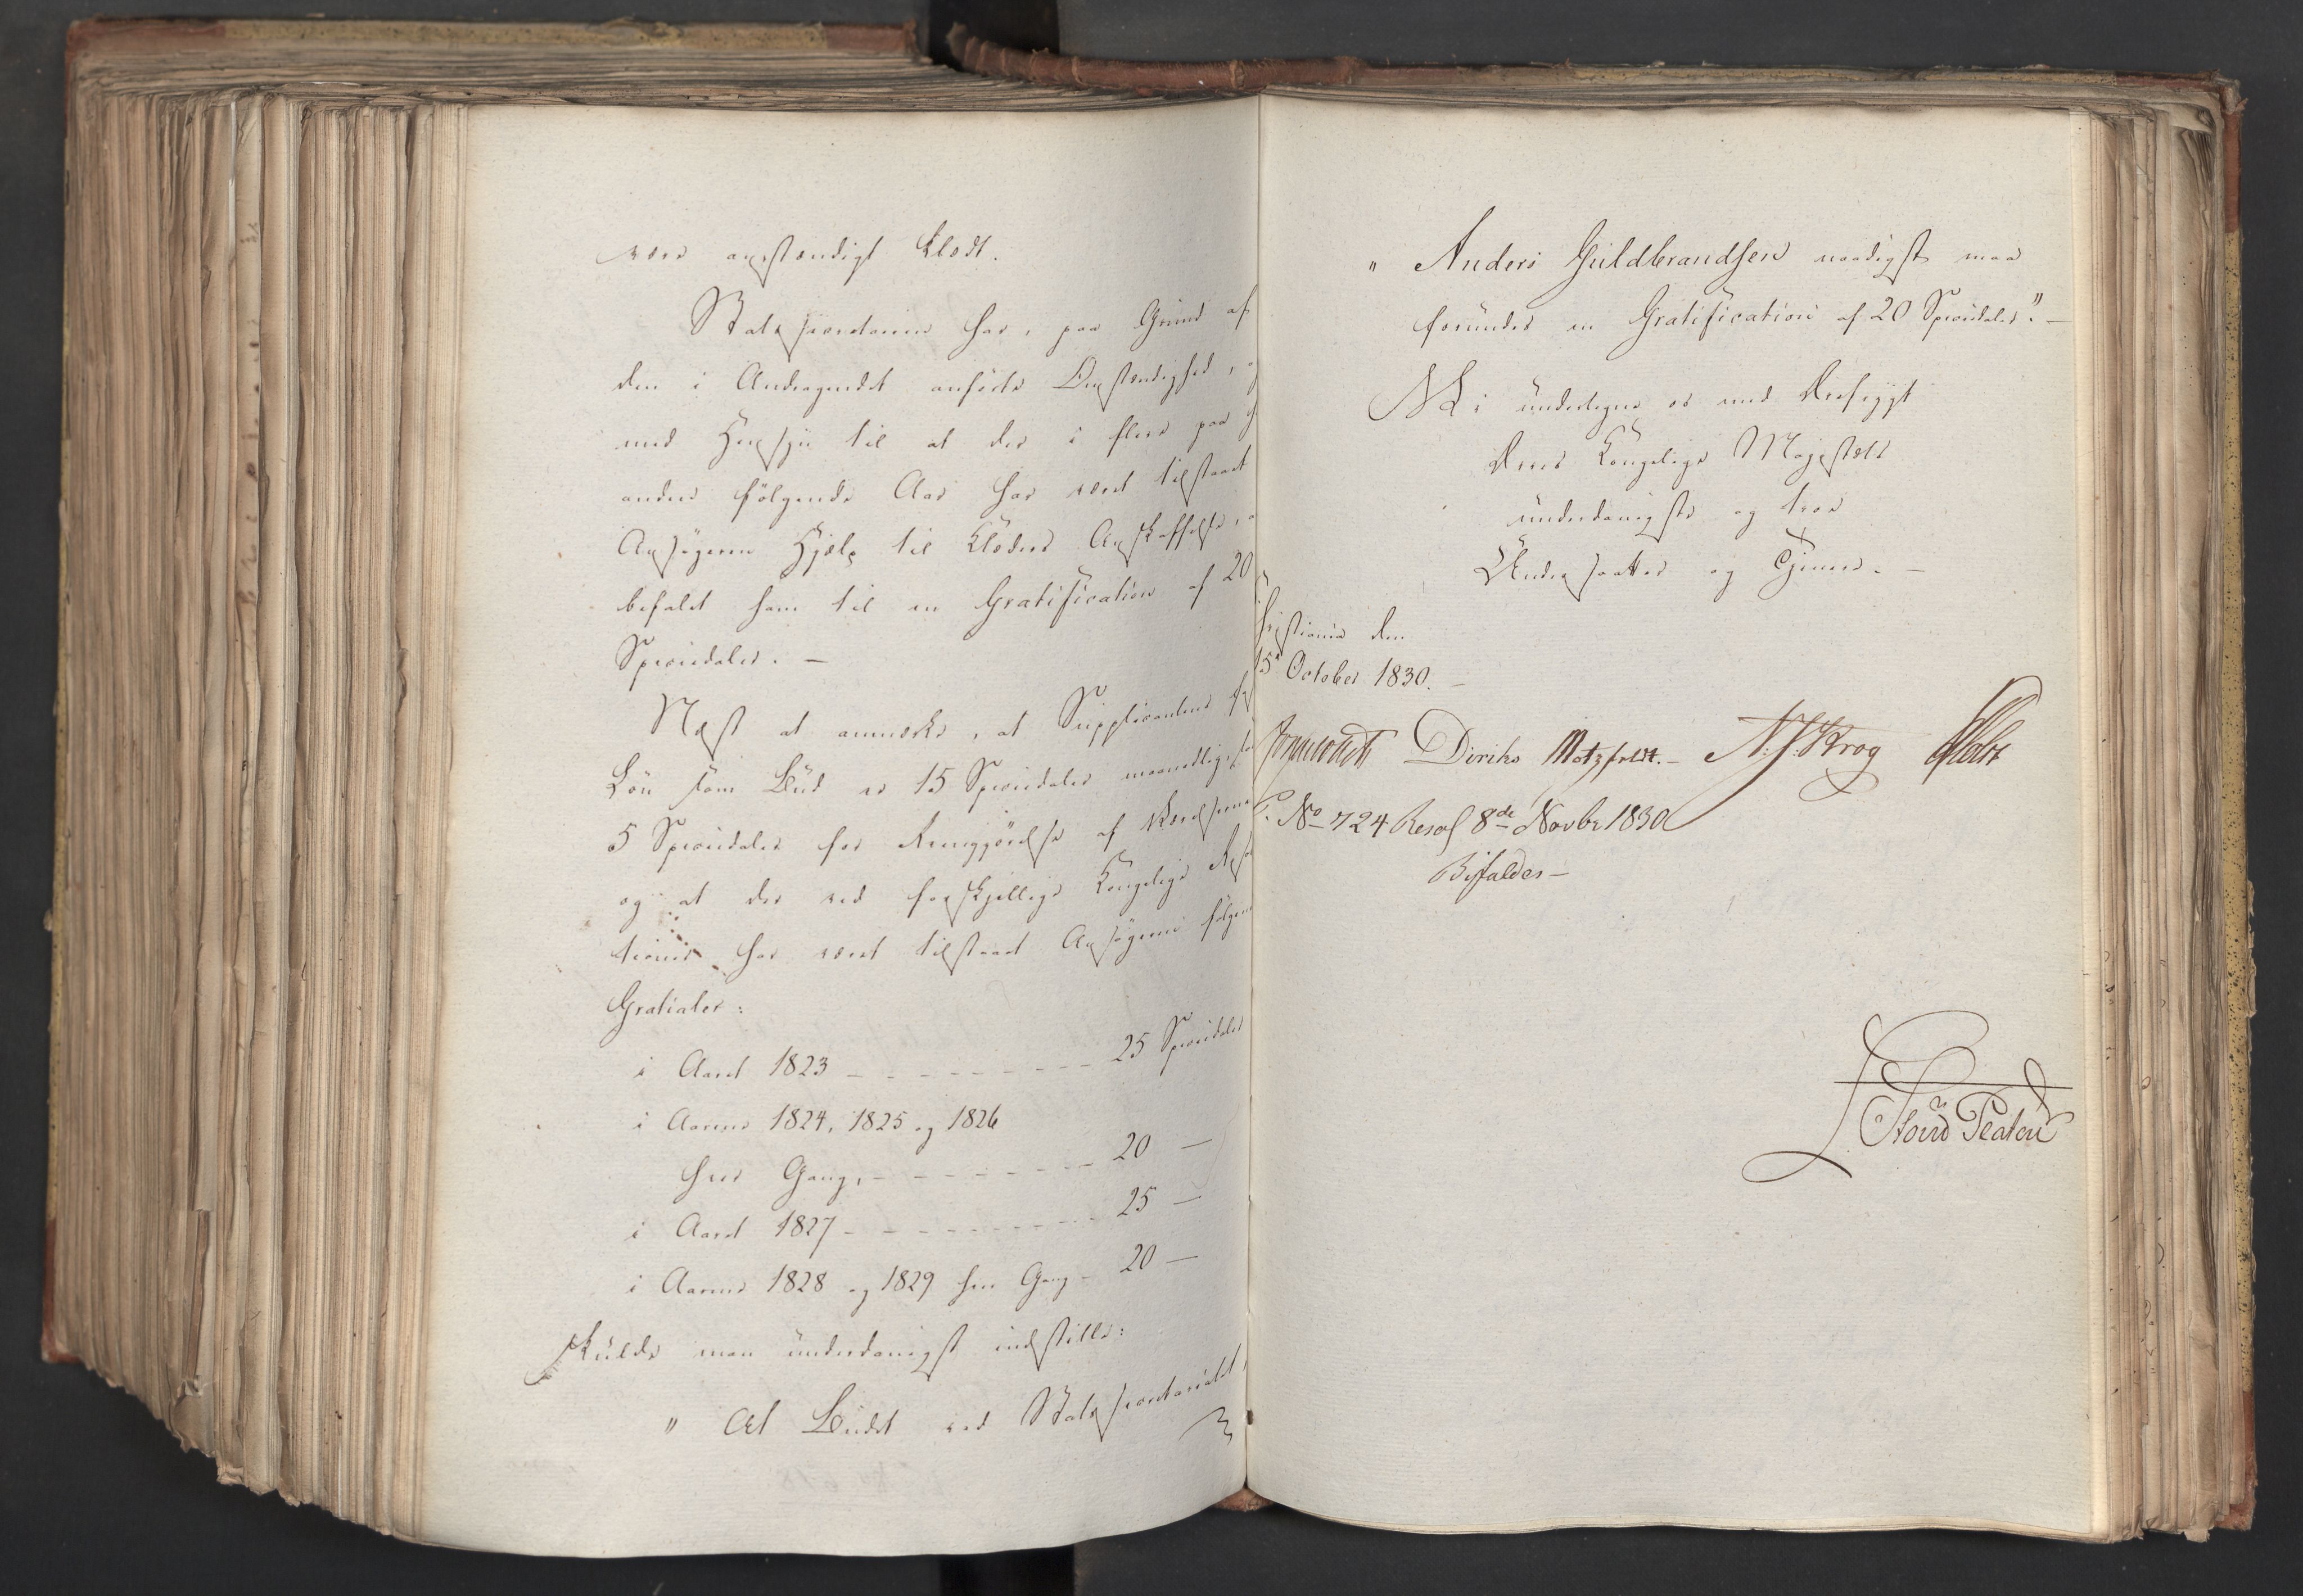 være anstændigt klædt.
Statssecretairen har, paa Grund af
den i Andragendet anførte Omstændighed, og
med Hensyn til at der i flere paa h
anden følgende Aar har været tilstaaet
Ansøgeren Hjælp til Klæders Anskaffelse,
befalet ham til en Gratification af 20
Speciedaler. —
Næst at anmærke, at Supplicantens
Løn som Bud er 15 Speciedaler maanedlig,
5 Speciedaler for Reengjørelse af Værelserne
og at der ved forskjellige Kongelige Reso
tioner har været tilstaaet Ansøgeren følgen
Gratialer:
i Aaret 1823 — — — 25 Speciedaler
i Aarene 1824, 1825 og 1826
hver Gang, — — — 20 —
i Aaret 1827 — — — 25 —
i Aarene 1828 og 1829 hver Gang — 20 —
skulde man underdanigst indstille:
" At Budet ved Statssecretariatet,
" Anders Guldbrandsen naadigst maa
forundes en Gratification af 20 Speciedaler." —
Vi undertegne os med Dybesygt
Deres Kongelige Majestæts
underdanigste og troe
Undersaatter og Tjenere. —
Christiania den
15 October 1830. —
Diriks Motzfeldt. — N. J. Krog
No 724 Resol 8de Novbr 1830
Bifaldes —